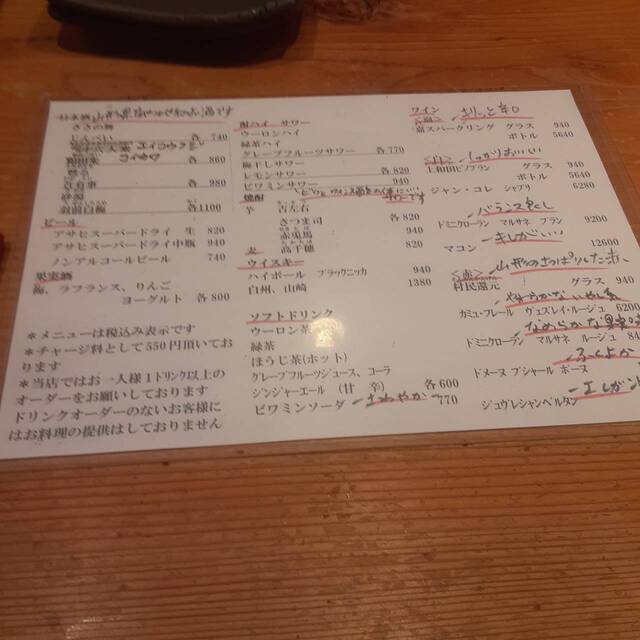 日本酒
ささの舞
じんべい 各 740
各 860
各 980
羽前白梅 各1100
ビール
アサヒスーパードライ 生 820
アサヒスーパードライ中瓶 940
ノンアルコールビール 740
果実酒
梅、ラフランス、りんご
ヨーグルト 各 800
＊メニューは税込み表示です
＊チャージ料として550円頂いてお
ります
＊当店ではお一人様1ドリンク以上の
オーダーをお願いしております
ドリンクオーダーのないお客様に
はお料理の提供はしておりません
酎ハイ サワー
ウーロンハイ
緑茶ハイ
グレープフルーツサワー 各770
梅干しサワー
レモンサワー 各 820
ビワミンサワー 940
焼酎
芋 古左右
さつま司 各 820
赤兎馬 940
麦 高千穂 820
ウイスキー
ハイボール ブラックニッカ 940
白州、山崎 1380
ソフトドリンク
ウーロン茶
緑茶
ほうじ茶(ホット)
グレープフルーツジュース、コーラ
ジンジャーエール (甘 辛) 各600
ビワミンソーダ さわやか 770
ワイン
嘉スパークリング グラス 940
ボトル 5640
上和田ピノブラン グラス 940
ボトル 5640
ジャン・コレ シャブリ 6280
ドミニクローラン マルサネ ブラン 9200
マコン 12600
<赤> 山形のさっぱりした赤
村民還元 グラス 940
カミュ・フレール ヴェズレイ・ルージュ 6200
ドミニクローラン マルサネ ルージュ
ふくよか
ドメーヌ ブシャール ボーヌ
ジュヴレシャンベルタン